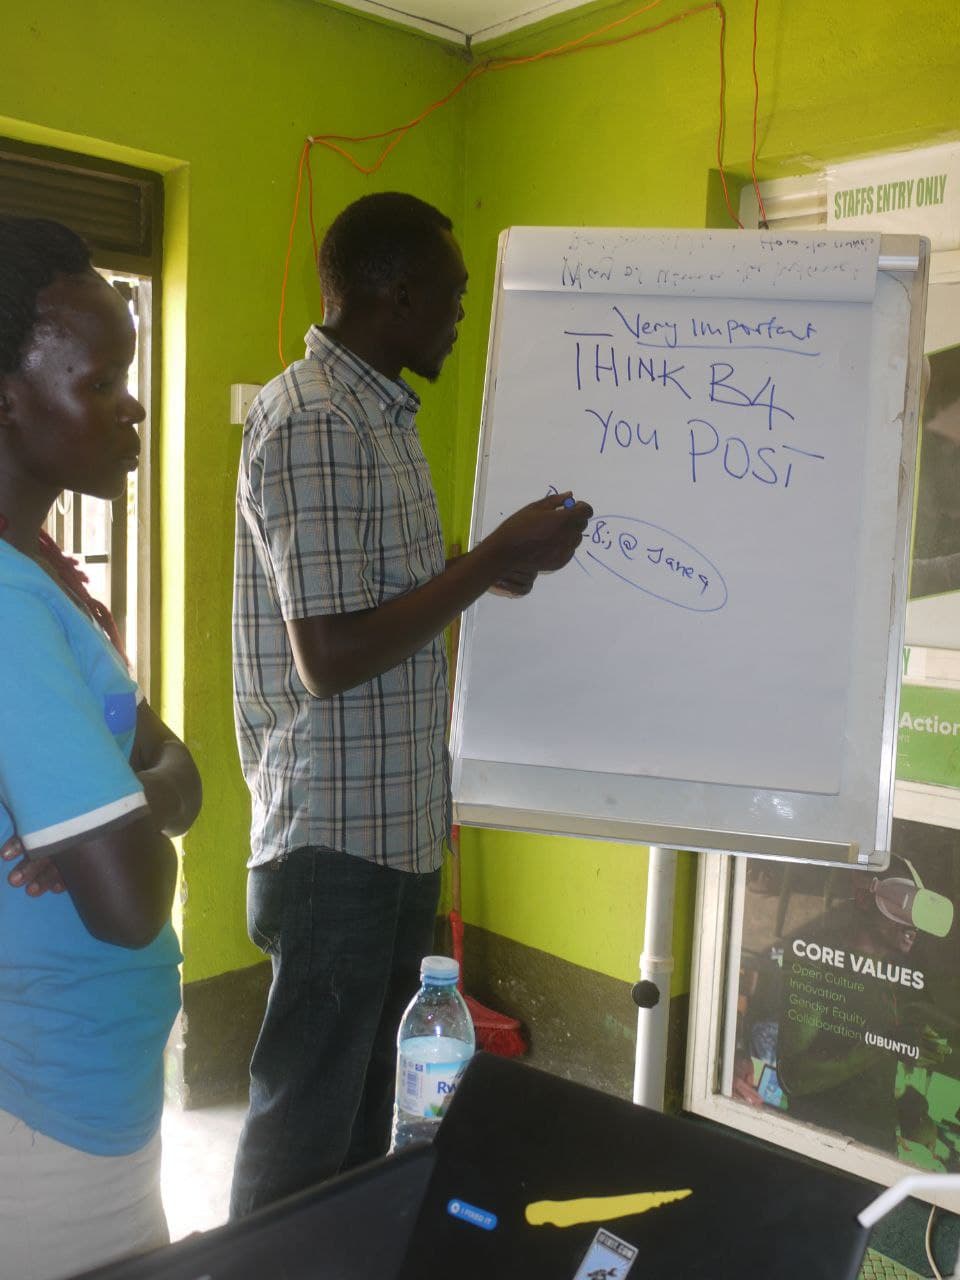 STAFFS ENTRY ONLY
Very Important
THINK B4
YOU POST
8.; @ Jane9
Action
CORE VALUES
Open Culture
Innovation
Gender Equity
Collaboration (UBUNTU)
Rw
I FIXED IT
IFIXIT.COM